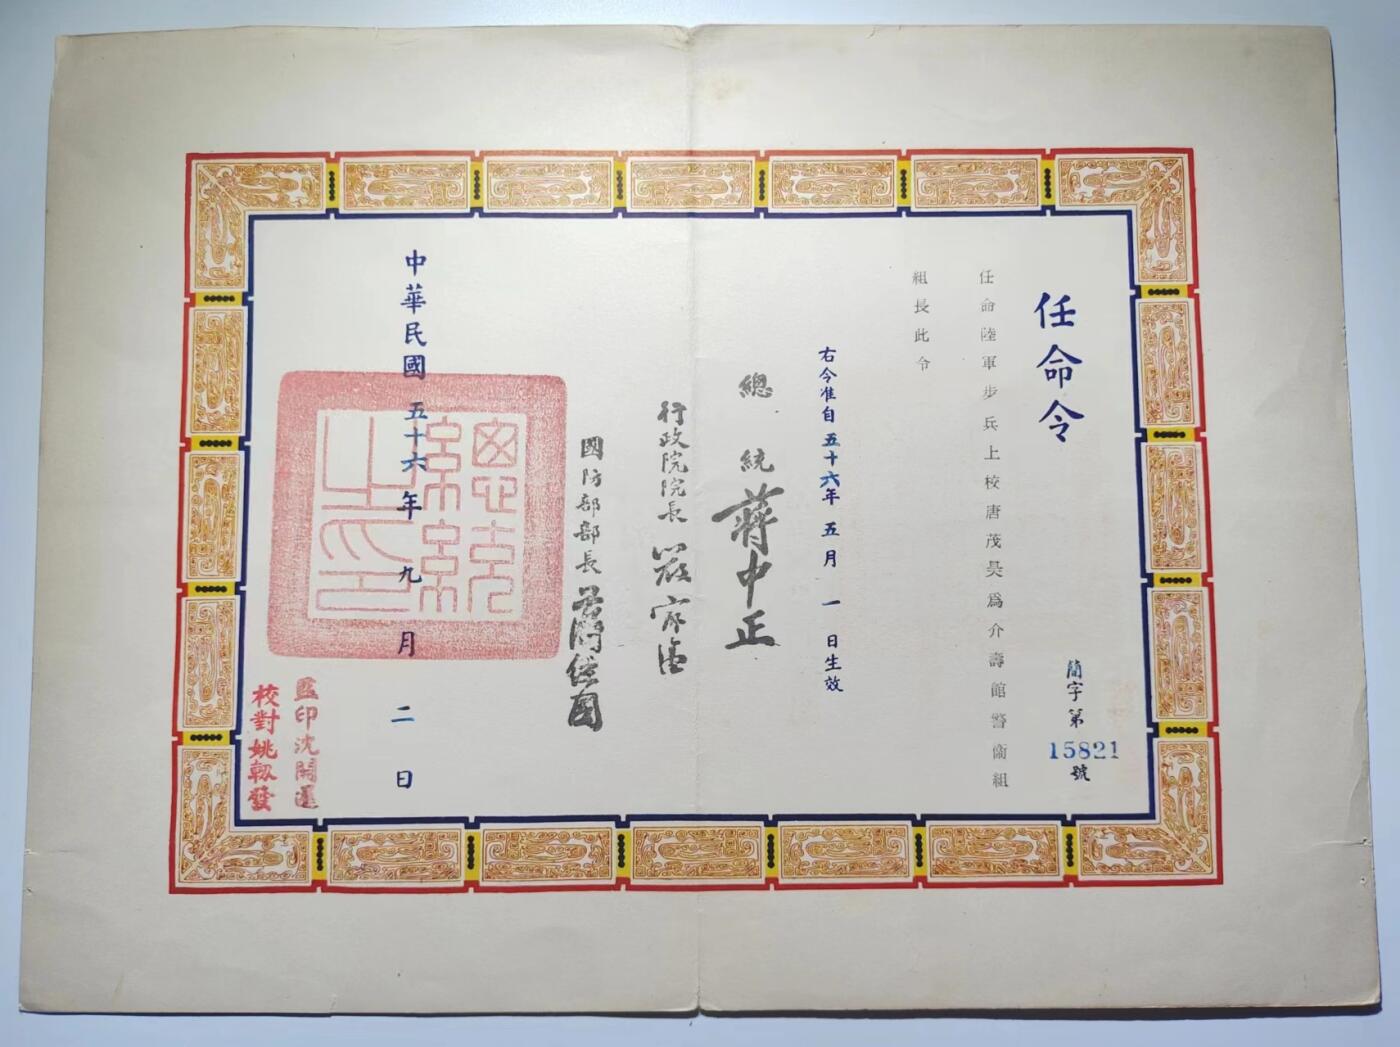 任命令
簡字第15821號
任命陸軍步兵上校唐茂昊為介壽館警衞組
組長此令
右令准自五十六年五月一日生效
總統 蔣中正
行政院院長 嚴家淦
國防部部長 蔣經國
中華民國五十六年九月二日
總統
之印
監印沈開運
校對姚翱發